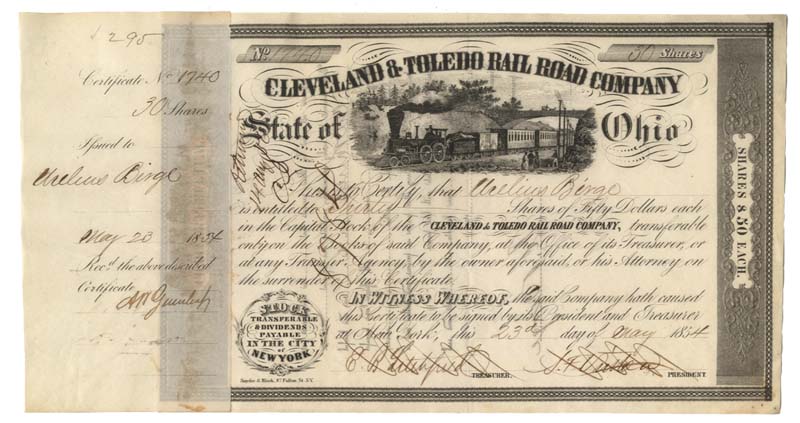 $ 295
Certificate No 1740
30 Shares
Issued to
Birge
May 23 1854
Recd. the above described
Certificate
No. 1740
30 Shares
CLEVELAND & TOLEDO RAIL ROAD COMPANY
State of Ohio
This is to Certify, that Birge
is entitled to Thirty Shares of Fifty Dollars each
in the Capital Stock of the CLEVELAND & TOLEDO RAIL ROAD COMPANY, transferable
only on the Books of said Company, at the Office of its Treasurer, or
at any Transfer Agency by the owner aforesaid, or his Attorney on
the surrender of this Certificate.
IN WITNESS WHEREOF, the said Company hath caused
this Certificate to be signed by its President and Treasurer
at New York, this 23d day of May 1854
TREASURER.
PRESIDENT
STOCK
TRANSFERABLE
& DIVIDENDS
PAYABLE
IN THE CITY
of
NEW YORK
Snyder & Black, 87 Fulton St. N.Y.
SHARES $ 50 EACH.